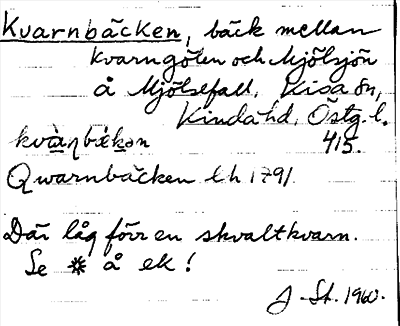 Kvarnbäcken, bäck mellan
Kvarngölen och Mjölsjön
å Mjölsefall, Kisa sn,
Kinda hd, Östg. l.
kvàɳbækən 415.
Qwarnbäcken lh 1791
Där låg förr en skvaltkvarn.
Se ☼ å ek!
J. St. 1960.